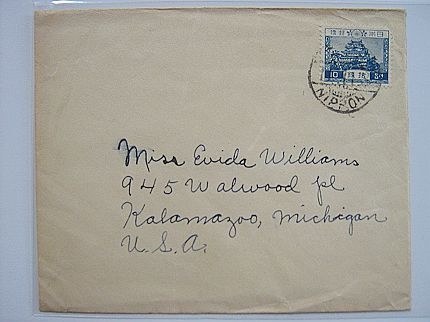 10 Sn
NIPPON
Miss Evida Williams
945 Walwood pl
Kalamazoo, Michigan
U.S.A.